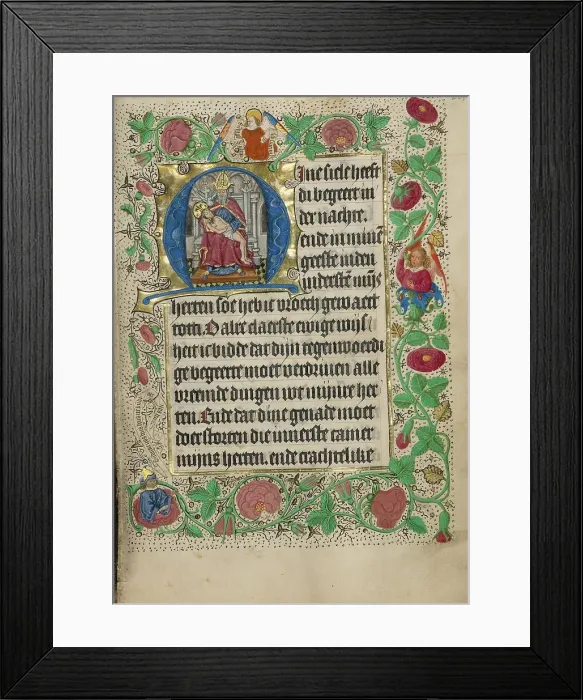 Ine siele heeft
di begeert in
der nachte.
ende in minē
geeste in den
herten soe hebic vroech gewaect
tot ti. O alre claerste ewige wijs
heit ic bidde dat dijn tegenwoerdi
ge begeerte moet verdriuen alle
vreemde dingen wt mijnre her
ten. Ende dat dine genade moet
doerstorten die innerste camer
mijns herten. ende crachtelike